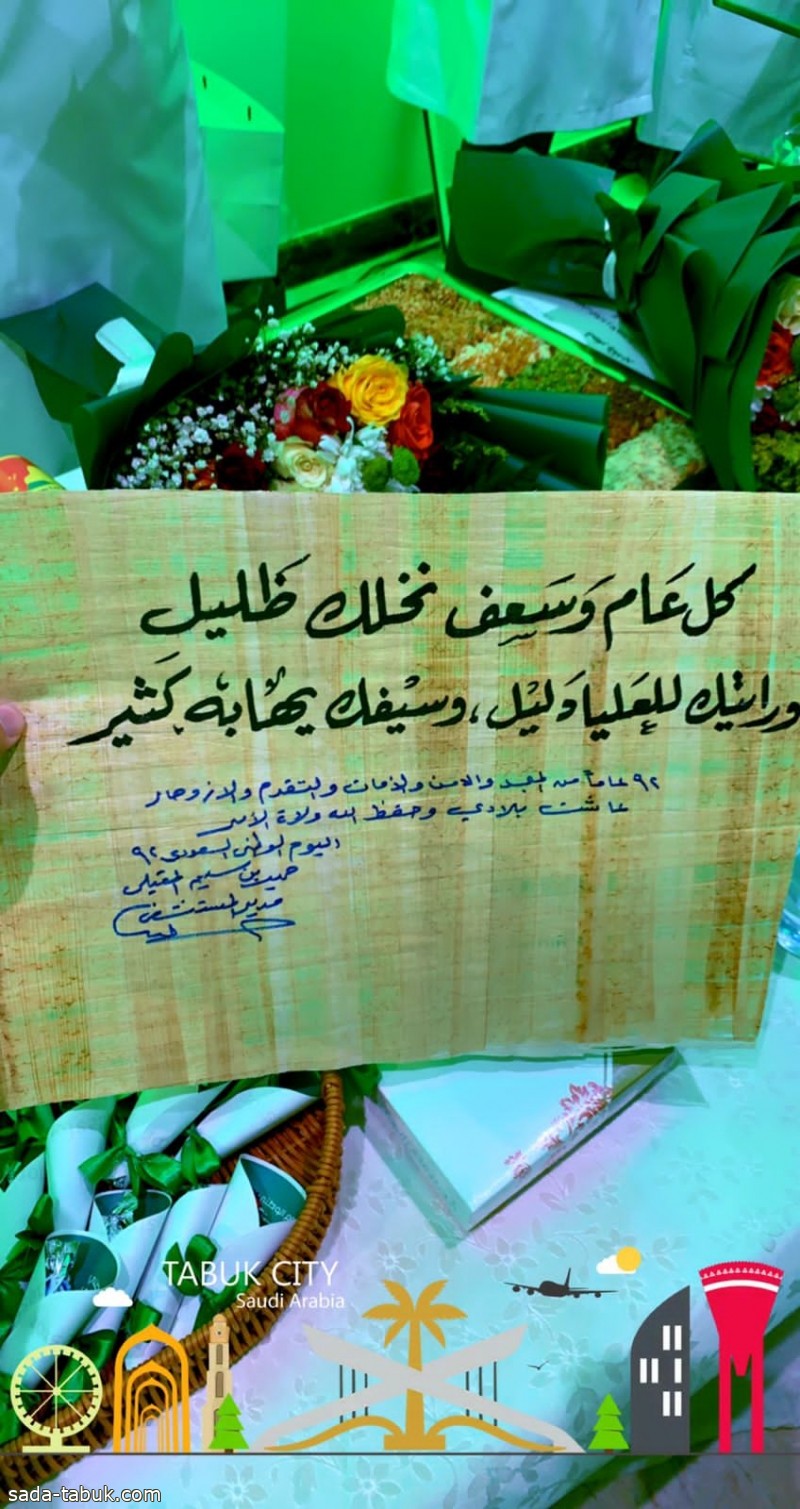 كل عَام وَسَعِف نخلك ظَليل
ورايتك للعَليا دَليْل، وسيْفك يهْابه كَثير
٩٢ عاماً من المجد والامن والامان والتقدم والازدهار
عاشت بلادي وحفظ الله ولاة الامر
اليوم الوطني السعودي ٩٢
بن سليم العقيلي
مدير المستشفى
TABUK CITY
Saudi Arabia
sada-tabuk.com